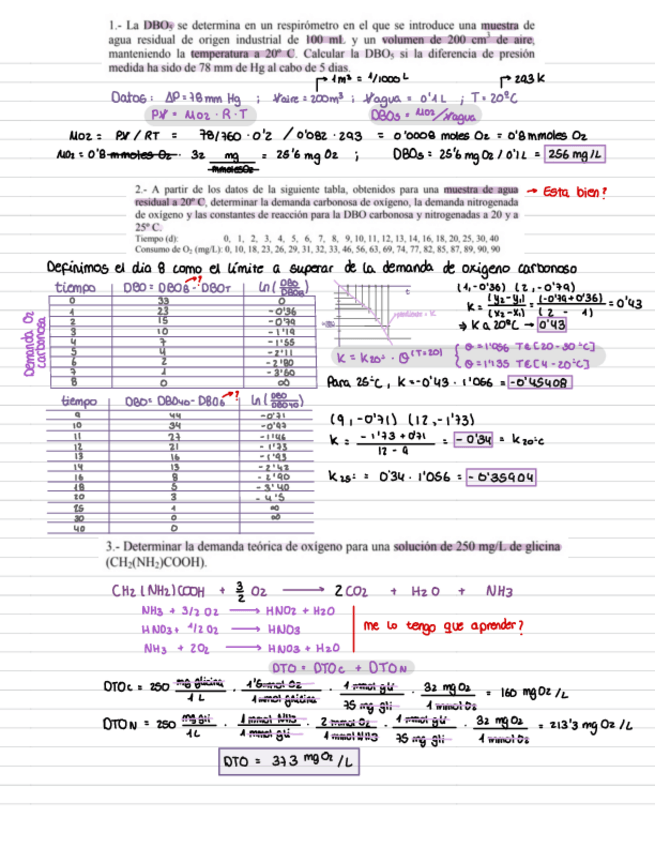 1.- La DBO₅ se determina en un respirómetro en el que se introduce una muestra de
agua residual de origen industrial de 100 mL y un volumen de 200 cm³ de aire,
manteniendo la temperatura a 20º C. Calcular la DBO₅ si la diferencia de presión
medida ha sido de 78 mm de Hg al cabo de 5 dias.
1m³ = 1/1000 L 293 K
Datos: ΔP = 78 mm Hg ; Vaire = 200m³ ; Vagua = 0'1 L ; T = 20ºC
PV = MO2 · R · T DBO5 = MO2/Vagua
MO2 = PV / RT = 78/760 · 0'2 / 0'082 · 293 = 0'0008 moles O2 = 0'8 mmoles O2
MO2 = 0'8 mmoles O2 · 32 mg/mmoles O2 = 25'6 mg O2 ; DBO5 = 25'6 mg O2 / 0'1L = 256 mg/L
2.- A partir de los datos de la siguiente tabla, obtenidos para una muestra de agua → Esta bien?
residual a 20º C, determinar la demanda carbonosa de oxígeno, la demanda nitrogenada
de oxígeno y las constantes de reacción para la DBO carbonosa y nitrogenadas a 20 y a
25º C.
Tiempo (d): 0, 1, 2, 3, 4, 5, 6, 7, 8, 9, 10, 11, 12, 13, 14, 16, 18, 20, 25, 30, 40
Consumo de O₂ (mg/L): 0, 10, 18, 23, 26, 29, 31, 32, 33, 46, 56, 63, 69, 74, 77, 82, 85, 87, 89, 90, 90
Definimos el dia 8 como el límite a superar de la demanda de oxigeno carbonoso
Demanda O2 carbonosa
tiempo DBO = DBO8 - DBOT ? ln(DBO/DBO8)
0 33 0
1 23 -0'36
2 15 -0'79
3 10 -1'19
4 7 -1'55
5 4 -2'11
6 2 -2'80
7 1 -3'50
8 0 ∞
pendiente = K
(1,-0'36) (2,-0'79)
K = (y2-y1)/(x2-x1) = (-0'79+0'36)/(2 - 1) = 0'43
⇒ K a 20ºC → 0'43
K = K20º · θ^(T-20) { θ = 1'056 T∈[20-30ºC]
θ = 1'135 T∈[4-20ºC]
Para 25ºC, K = -0'43 · 1'056 = -0'45408
tiempo DBO = DBO40 - DBO8 ? ln(DBO/DBO40)
9 44 -0'71
10 34 -0'97
11 27 -1'146
12 21 -1'73
13 16 -1'93
14 13 -2'42
16 8 -2'90
18 5 -3'40
20 3 -4'5
25 1 ∞
30 0 ∞
40 0
(9,-0'71) (12,-1'73)
K = -1'73 + 0'71 / 12 - 9 = -0'34 = K20ºC
K25º = 0'34 · 1'056 = -0'35904
3.- Determinar la demanda teórica de oxígeno para una solución de 250 mg/L de glicina
(CH₂(NH₂)COOH).
CH2(NH2)COOH + 3/2 O2 → 2CO2 + H2O + NH3
NH3 + 3/2 O2 → HNO2 + H2O
HNO3 + 1/2 O2 → HNO3
NH3 + 2O2 → HNO3 + H2O
me lo tengo que aprender?
DTO = DTOC + DTON
DTOC = 250 mg glicina/1 L · 1'5 mmol O2/1 mmol glicina · 1 mmol gli/75 mg gli · 32 mg O2/1 mmol O2 = 160 mg O2/L
DTON = 250 mg gli/1L · 1 mmol NH3/1 mmol gli · 2 mmol O2/1 mmol NH3 · 1 mmol gli/75 mg gli · 32 mg O2/1 mmol O2 = 213'3 mg O2/L
DTO = 373 mg O2/L